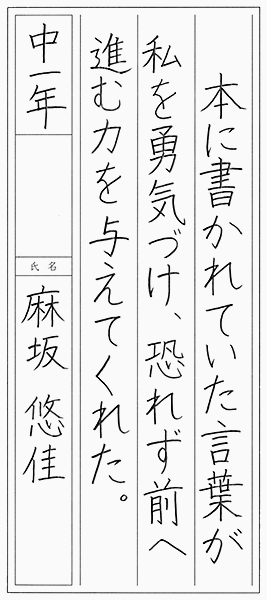 本に書かれていた言葉が
私を勇気づけ、恐れず前へ
進む力を与えてくれた。
中一年
氏名
麻坂 悠佳